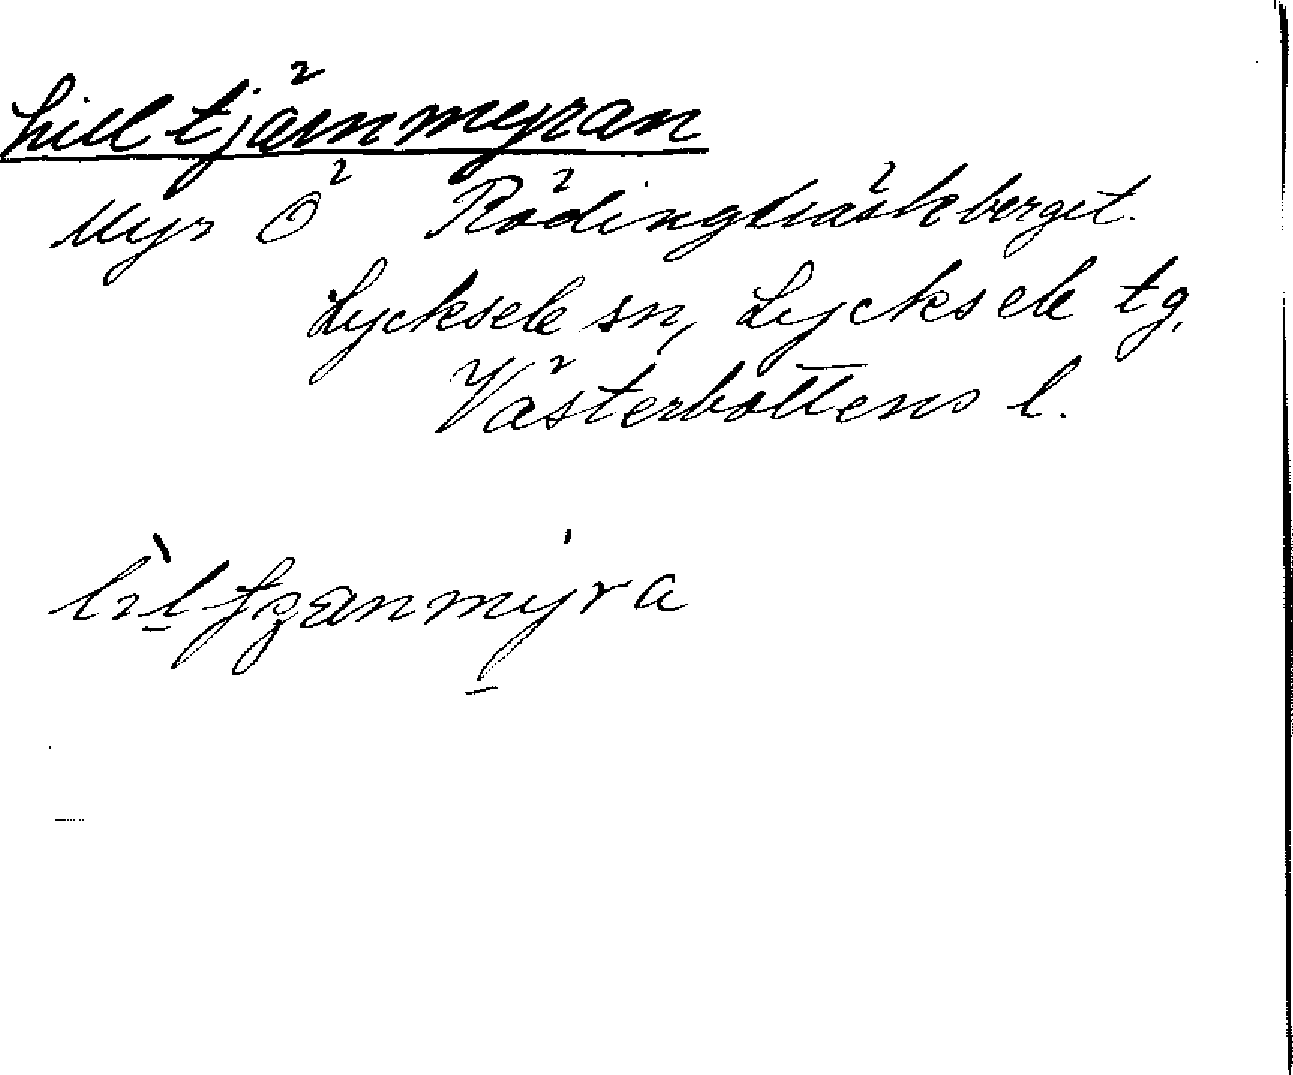 Lilltjärnmyran
Myr Ö Rödingträskberget.
Lycksele sn, Lycksele tg,
Västerbottens l.